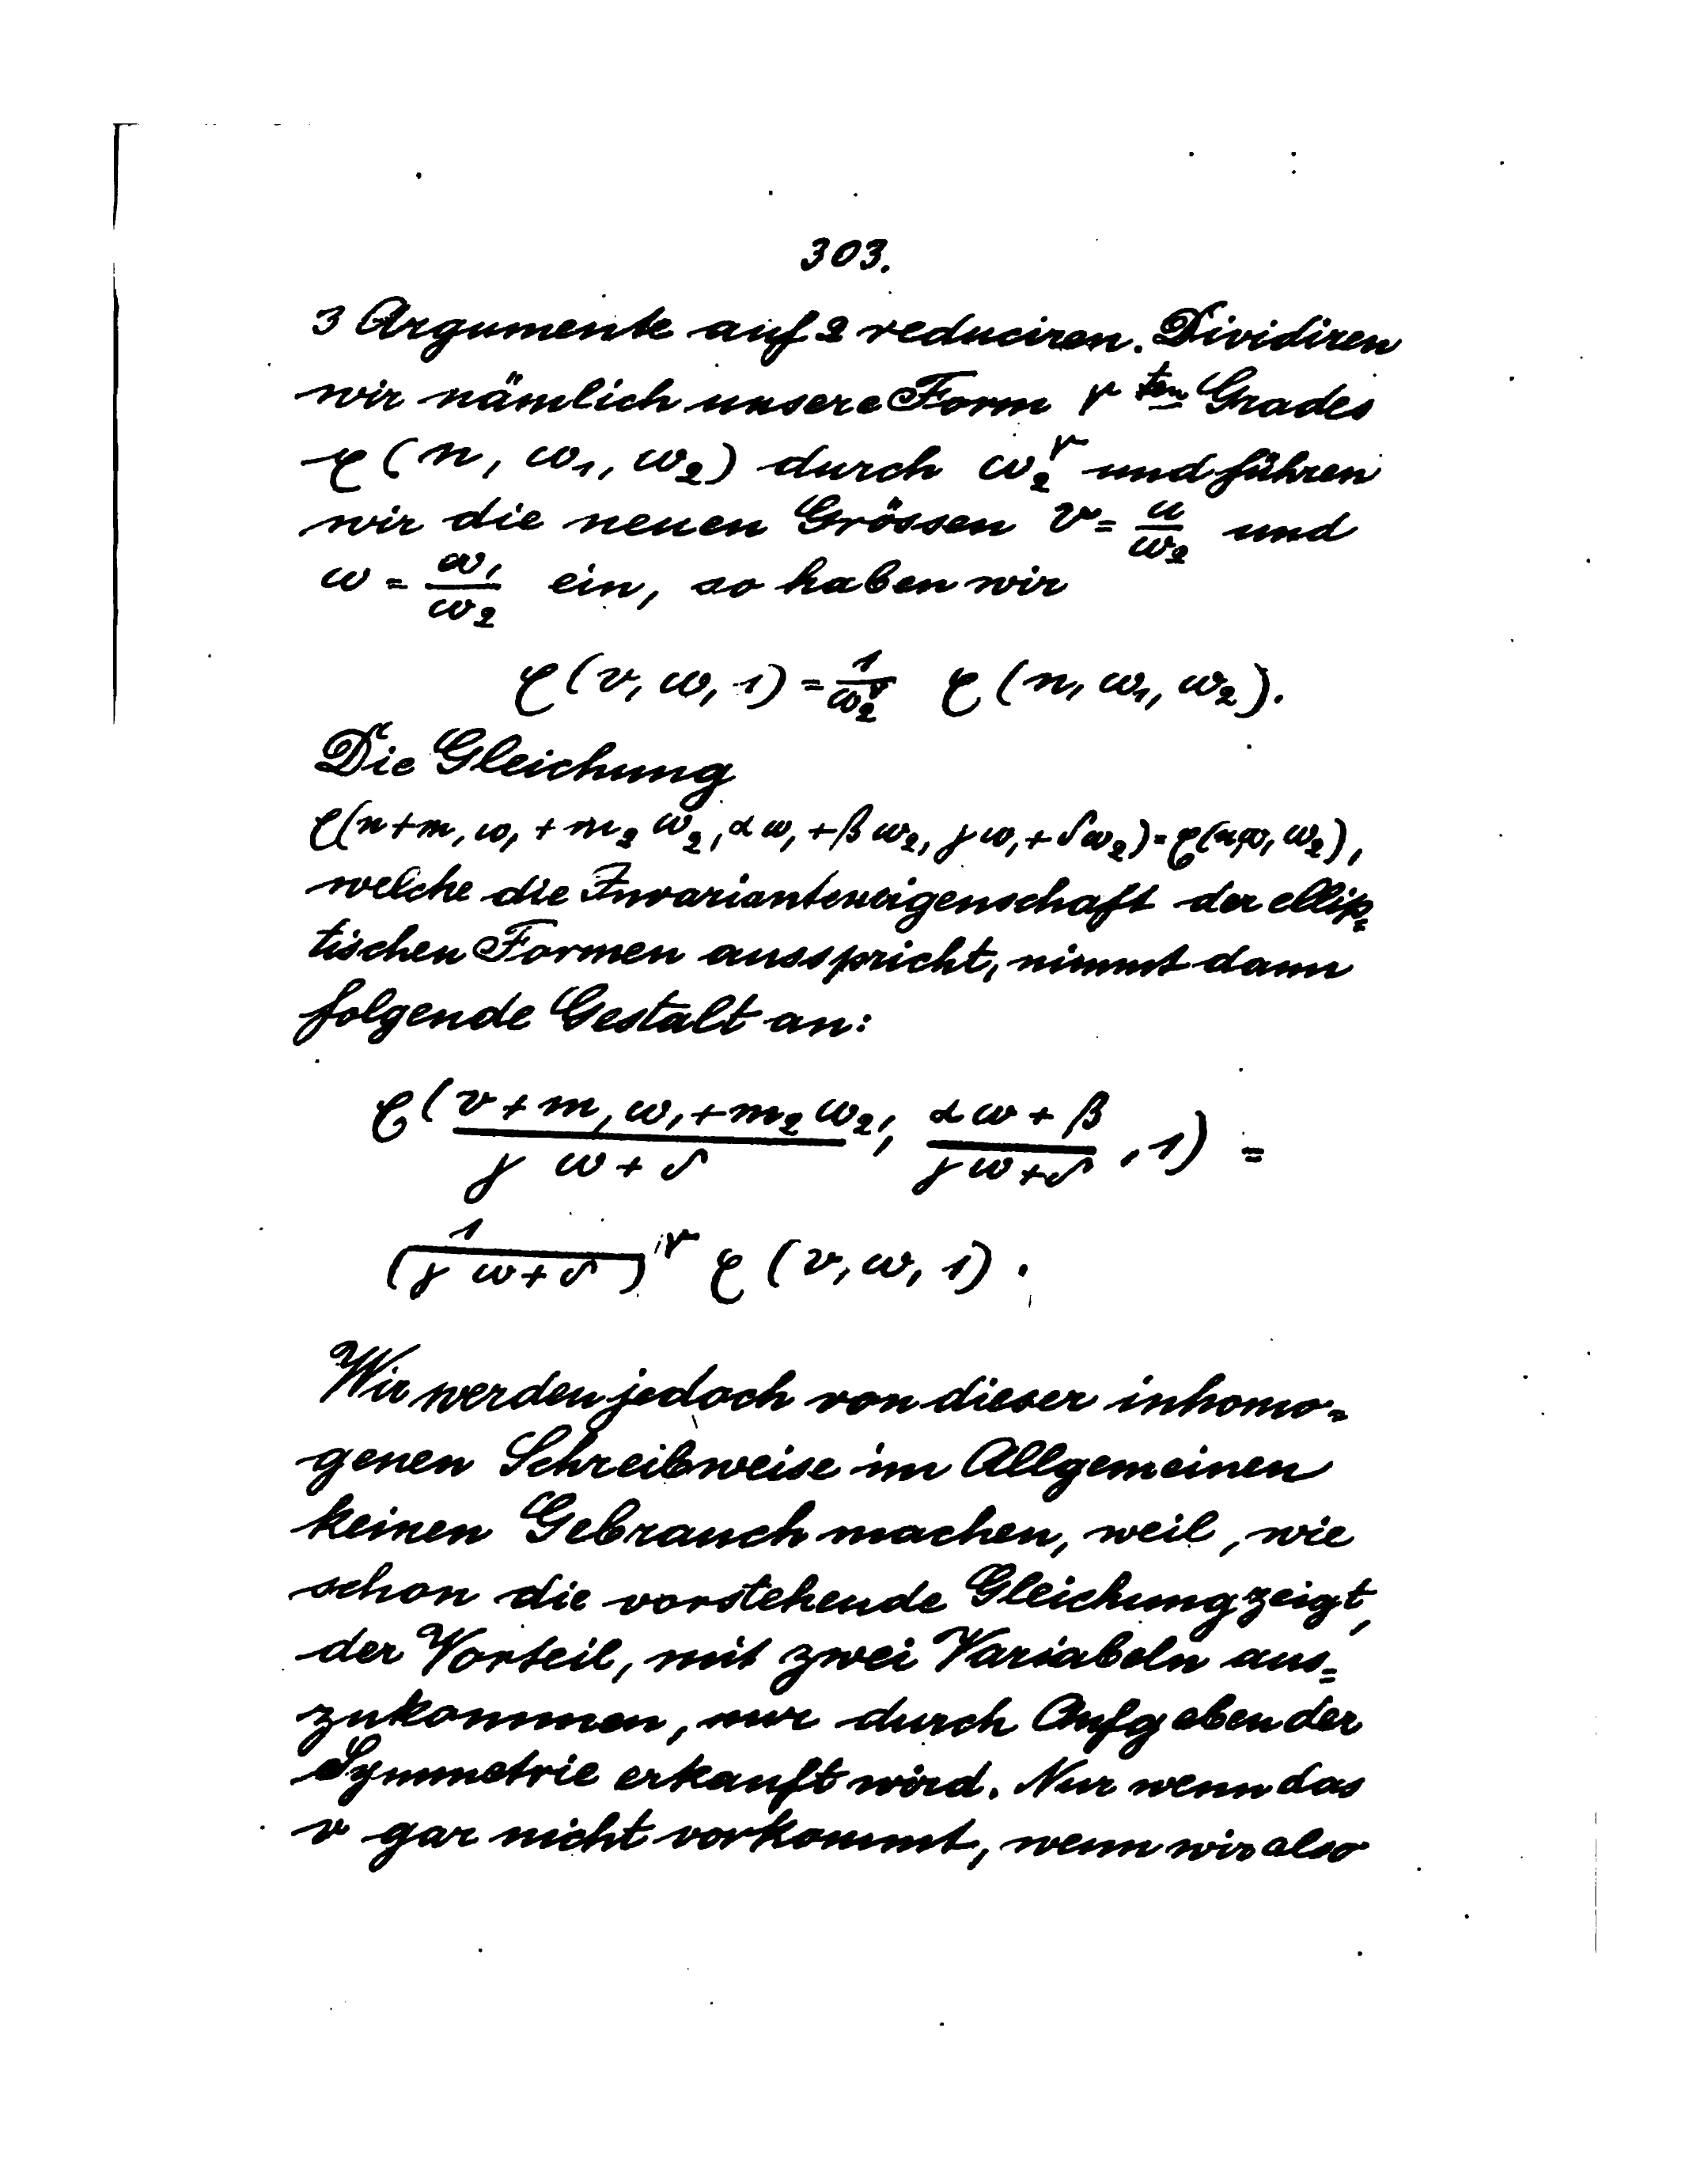 303.
3 Argumente auf 2 reduciren. Dividiren
wir nämlich unsere Form r ten Grades
φ(u, ω₁, ω₂) durch ω₂^r und führen
wir die neuen Grössen v = u/ω₂ und
ω = ω₁/ω₂ ein, so haben wir
φ(v, ω, 1) = 1/ω₂^r φ(u, ω₁, ω₂).
Die Gleichung
φ(u+m₁ω₁+m₂ω₂, αω₁+βω₂, γω₁+δω₂)=φ(u,ω₁,ω₂),
welche die Invarianteneigenschaft der ellip=
tischen Formen ausspricht, nimmt dann
folgende Gestalt an:
φ((v+m₁ω₁+m₂ω₂)/(γω+δ), (αω+β)/(γω+δ), 1) =
1/(γω+δ)^r φ(v, ω, 1).
Wir werden jedoch von dieser inhomo=
genen Schreibweise im Allgemeinen
keinen Gebrauch machen, weil, wie
schon die vorstehende Gleichung zeigt,
der Vorteil, mit zwei Variabeln aus=
zukommen, nur durch Aufgeben der
Symmetrie erkauft wird. Nur wenn das
v gar nicht vorkommt, wenn wir also